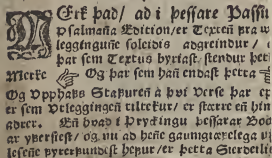 MErk þad/ ad i þessare Passiu
psalmana Edition/ er Texten̄ fra w
leggingun̄e soleidis adgreindur/
þar sem Textus byriast/ stendur þet
Merke ☞ Og þar sem han̄ endast þetta ☜
Og Vpphafs Stafuren̄ a þvi Verse þar ep
er sem Vtleggingen̄ tiltekur/ er stærre en̄ hin
adrer. En̄ hvad i Prycktingu þessarar Boo
ar yfersiest/ og nu ad hen̄e gaumgiæfelega
lesen̄e fyrerfundest hefur/ er þetta Sierdeil